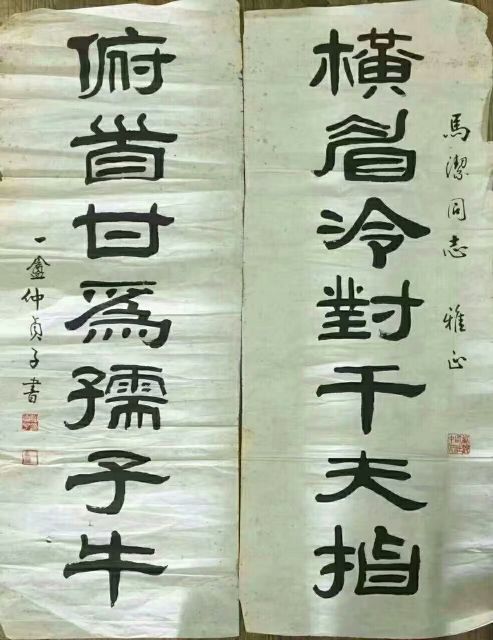 馬潔同志 雅正
橫眉冷對千夫指
俯首甘爲孺子牛
一盦仲貞子書